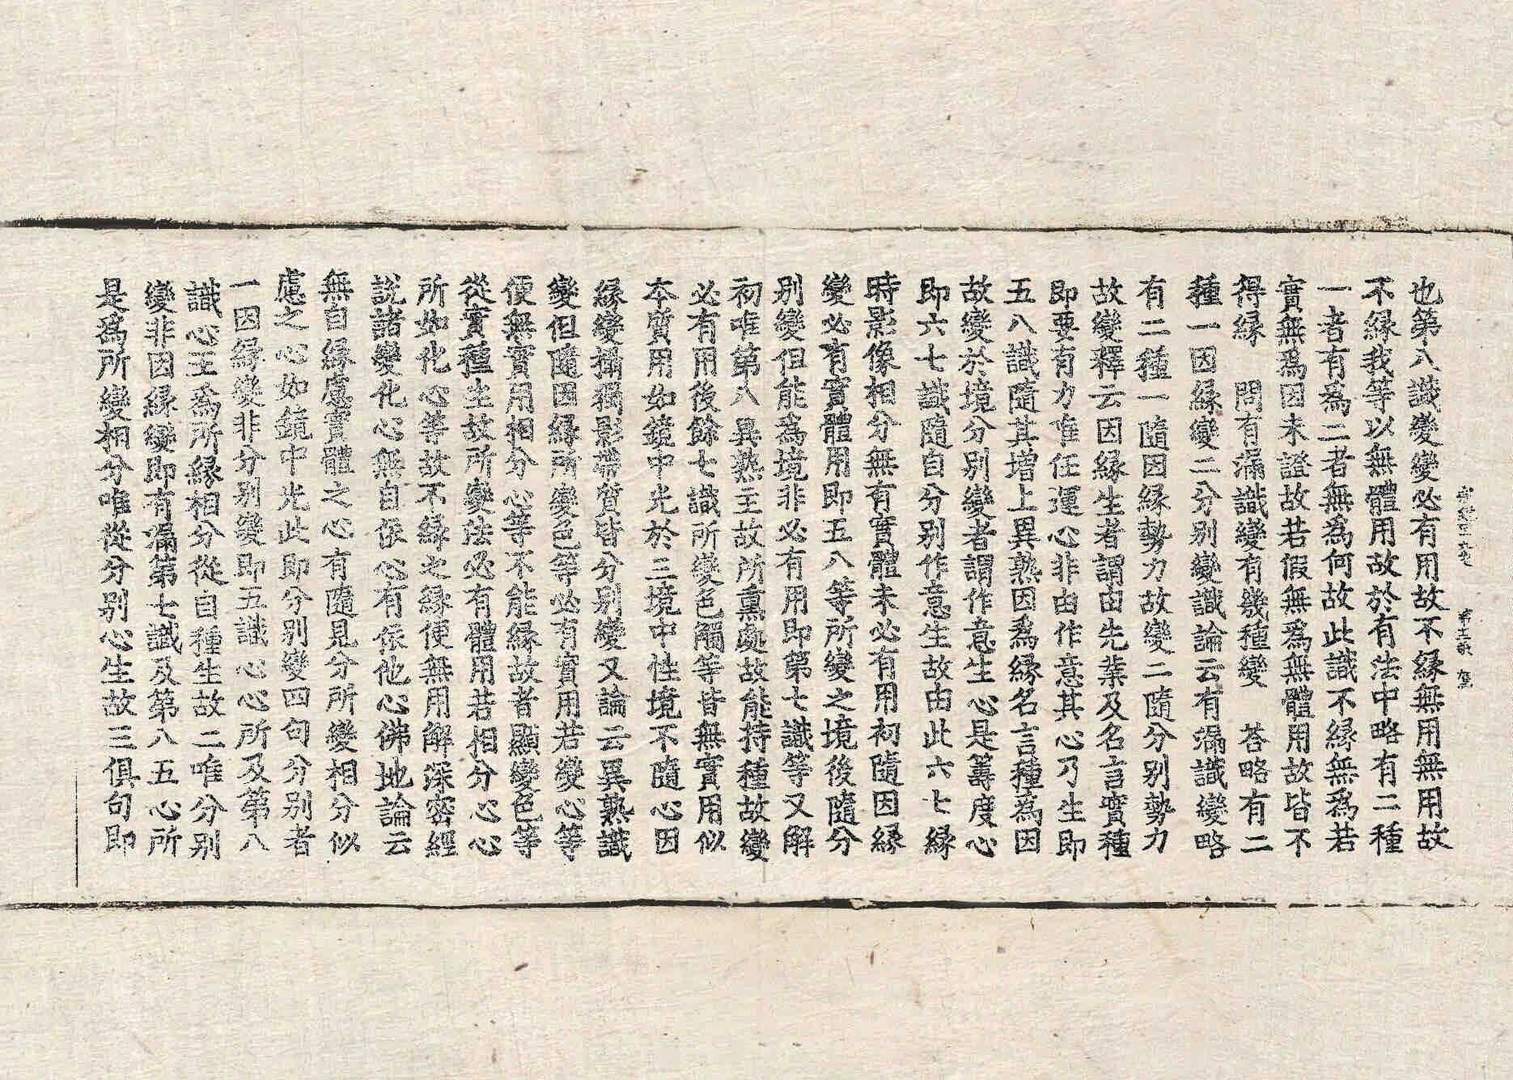 也第八識變變必有用故不緣無用無用故
不緣我等以無體用故於有法中略有二種
一者有爲二者無爲何故此識不緣無爲若
實無爲因未證故若假無爲無體用故皆不
得緣　問有漏識變有幾種變　荅略有二
種一因緣變二分別變識論云有漏識變略
有二種一隨因緣勢力故變二隨分別勢力
故變釋云因緣生者謂由先業及名言實種
即要有力唯任運心非由作意其心乃生即
五八識隨其增上異熟因爲緣名言種爲因
故變於境分別變者謂作意生心是籌度心
即六七識隨自分別作意生故由此六七緣
時影像相分無有實體未必有用初隨因緣
變必有實體用即五八等所變之境後隨分
別變但能爲境非必有用即第七識等又解
初唯第八異熟主故所熏處故能持種故變
必有用後餘七識所變色觸等皆無實用似
本質用如鏡中光於三境中性境不隨心因
緣變攝獨影帶質皆分別變又論云異熟識
變但隨因緣所變色等必有實用若變心等
便無實用相分心等不能緣故者顯變色等
從實種生故所變法必有體用若相分心心
所如化心等故不緣之緣便無用解深密經
說諸變化心無自依心有依他心佛地論云
無自緣慮實體之心有隨見分所變相分似
慮之心如鏡中光此即分別變四句分別者
一因緣變非分別變即五識心心所及第八
識心王爲所緣相分從自種生故二唯分別
變非因緣變即有漏第七識及第八五心所
是爲所變相分唯從分別心生故三俱句即